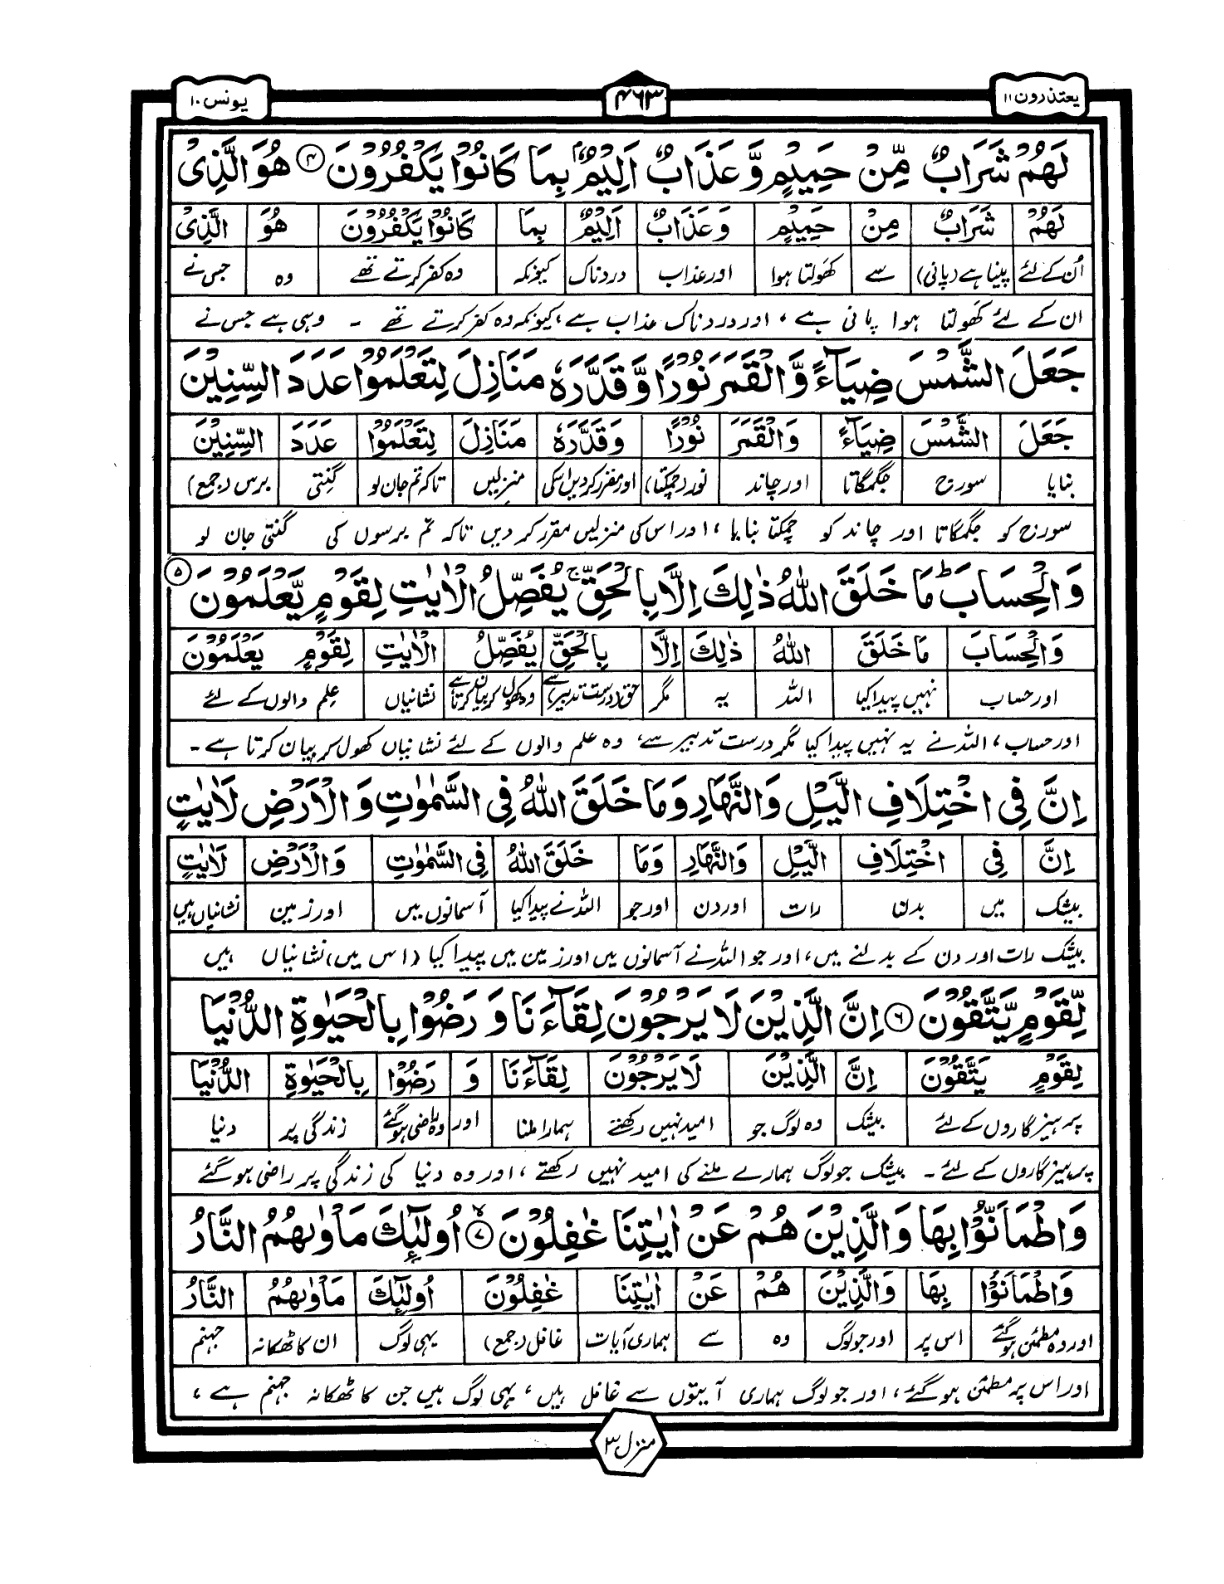 یعتذرون ۱۱
۴۶۳
یونس ۱۰
لَهُمْ شَرَابٌ مِّنْ حَمِيْمٍ وَّ عَذَابٌ اَلِيْمٌۢ بِمَا كَانُوْا يَكْفُرُوْنَ ۝۴ هُوَ الَّذِىْ
لَهُمْ شَرَابٌ مِنْ حَمِيْمٍ وَعَذَابٌ اَلِيْمٌ بِمَا كَانُوْا يَكْفُرُوْنَ هُوَ الَّذِىْ
اُن کے لئے پینا ہے (پانی) سے کھَولتا ہوا اور عذاب دردناک کیونکہ وہ کفر کرتے تھے وہ جس نے
ان کے لئے کھَولتا ہوا پانی ہے، اور دردناک عذاب ہے، کیونکہ وہ کفر کرتے تھے ۔ وہی ہے جس نے
جَعَلَ الشَّمْسَ ضِيَآءً وَّ الْقَمَرَ نُوْرًا وَّ قَدَّرَهٗ مَنَازِلَ لِتَعْلَمُوْا عَدَدَ السِّنِيْنَ
جَعَلَ الشَّمْسَ ضِيَآءً وَالْقَمَرَ نُوْرًا وَقَدَّرَهٗ مَنَازِلَ لِتَعْلَمُوْا عَدَدَ السِّنِيْنَ
بنایا سورج جگمگاتا اور چاند نور (چمکتا) اور مقرر کر دیں اسکی منزلیں تاکہ تم جان لو گنتی برس (جمع)
سورج کو جگمگاتا اور چاند کو چمکتا بنایا، اور اس کی منزلیں مقرر کر دیں تاکہ تم برسوں کی گنتی جان لو
وَ الْحِسَابَ ؕ مَا خَلَقَ اللّٰهُ ذٰلِكَ اِلَّا بِالْحَقِّ ۚ يُفَصِّلُ الْاٰيٰتِ لِقَوْمٍ يَّعْلَمُوْنَ ۝۵
وَالْحِسَابَ مَا خَلَقَ اللّٰهُ ذٰلِكَ اِلَّا بِالْحَقِّ يُفَصِّلُ الْاٰيٰتِ لِقَوْمٍ يَعْلَمُوْنَ
اور حساب نہیں پیدا کیا اللہ یہ مگر حق (درست تدبیر) سے وہ کھول کر بیان کرتا ہے نشانیاں علم والوں کے لئے
اور حساب، اللہ نے یہ نہیں پیدا کیا مگر درست تدبیر سے، وہ علم والوں کے لئے نشانیاں کھول کر بیان کرتا ہے ۔
اِنَّ فِى اخْتِلَافِ الَّيْلِ وَالنَّهَارِ وَمَا خَلَقَ اللّٰهُ فِى السَّمٰوٰتِ وَ الْاَرْضِ لَاٰيٰتٍ
اِنَّ فِى اخْتِلَافِ الَّيْلِ وَالنَّهَارِ وَمَا خَلَقَ اللّٰهُ فِى السَّمٰوٰتِ وَالْاَرْضِ لَاٰيٰتٍ
بیشک میں بدلنا رات اور دن اور جو اللہ نے پیدا کیا آسمانوں میں اور زمین نشانیاں ہیں
بیشک رات اور دن کے بدلنے میں، اور جو اللہ نے آسمانوں میں اور زمین میں پیدا کیا (اس میں) نشانیاں ہیں
لِّقَوْمٍ يَّتَّقُوْنَ ۝۶ اِنَّ الَّذِيْنَ لَا يَرْجُوْنَ لِقَآءَنَا وَ رَضُوْا بِالْحَيٰوةِ الدُّنْيَا
لِقَوْمٍ يَتَّقُوْنَ اِنَّ الَّذِيْنَ لَا يَرْجُوْنَ لِقَآءَنَا وَ رَضُوْا بِالْحَيٰوةِ الدُّنْيَا
پرہیزگاروں کے لئے بیشک وہ لوگ جو امید نہیں رکھتے ہمارا ملنا اور وہ راضی ہو گئے زندگی پر دنیا
پرہیزگاروں کے لئے ۔ بیشک جو لوگ ہمارے ملنے کی امید نہیں رکھتے، اور وہ دنیا کی زندگی پر راضی ہو گئے
وَ اطْمَاَنُّوْا بِهَا وَ الَّذِيْنَ هُمْ عَنْ اٰيٰتِنَا غٰفِلُوْنَ ۝۷ اُولٰٓئِكَ مَاْوٰىهُمُ النَّارُ
وَاطْمَاَنُّوْا بِهَا وَالَّذِيْنَ هُمْ عَنْ اٰيٰتِنَا غٰفِلُوْنَ اُولٰٓئِكَ مَاْوٰىهُمُ النَّارُ
اور وہ مطمئن ہو گئے اس پر اور جو لوگ وہ سے ہماری آیات غافل (جمع) یہی لوگ ان کا ٹھکانہ جہنم
اور اس پر مطمئن ہو گئے، اور جو لوگ ہماری آیتوں سے غافل ہیں، یہی لوگ ہیں جن کا ٹھکانہ جہنم ہے،
منزل ۳